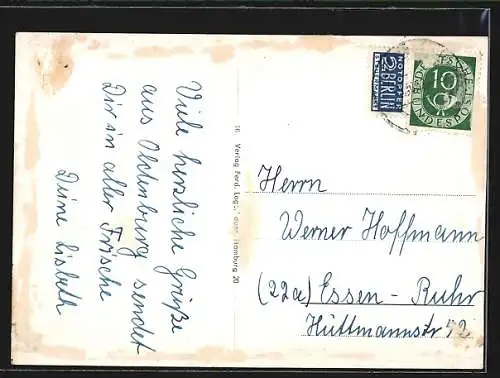 Viele herzliche Grüße
aus Oldenburg sendet
Dir in aller Frische
Deine Lisbeth
NOTOPFER
2 BERLIN
STEUERMARKE
10
DEUTSCHE
BUNDESPOST
Herrn
Werner Hoffmann
(22a) Essen - Ruhr
Hüttmannstr 52
16 Verlag Ferd. Hamburg 20